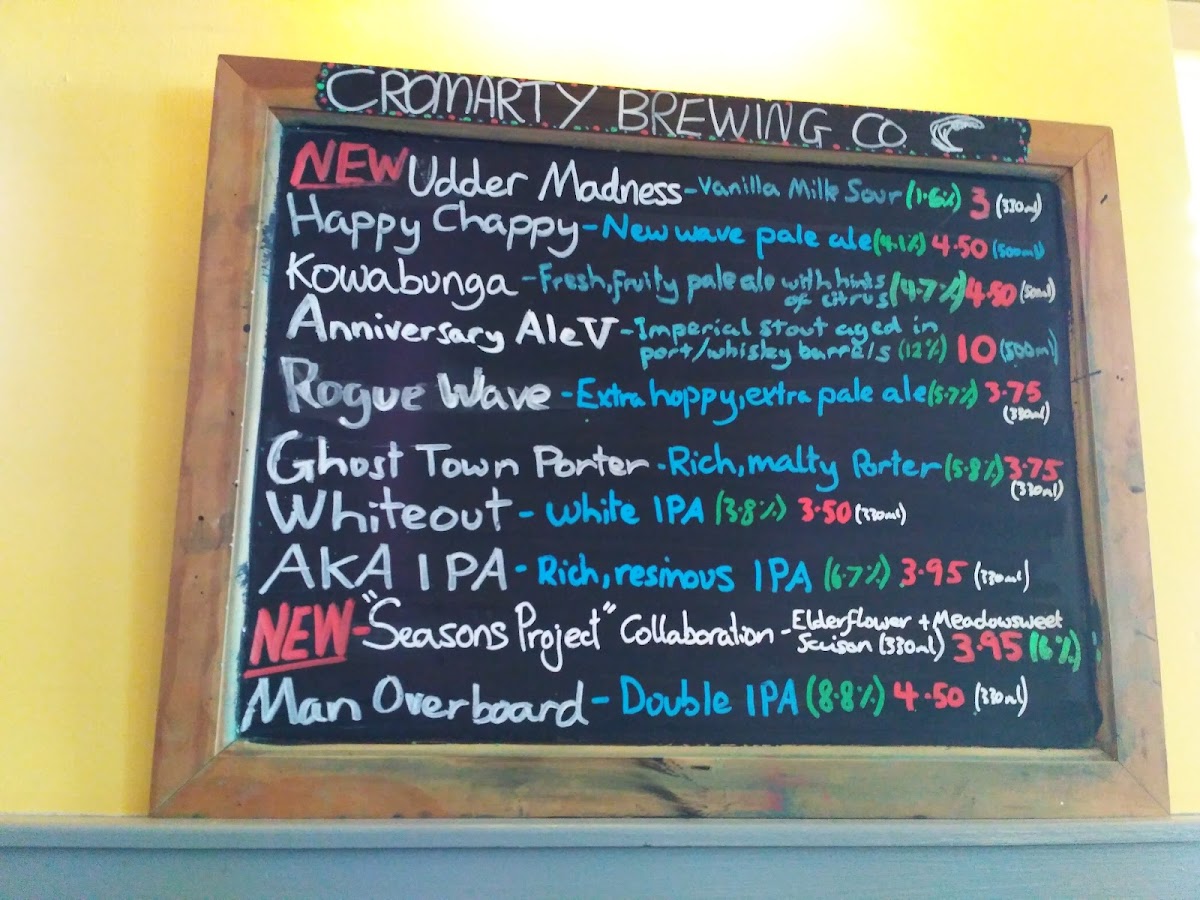 CROMARTY BREWING CO.
NEW Udder Madness - Vanilla Milk Sour (1.6%) 3 (330ml)
Happy Chappy - New wave pale ale (4.1%) 4.50 (500ml)
Kowabunga - Fresh, fruity pale ale with hints
of citrus (4.7%) 4.50 (500ml)
Anniversary Ale V - Imperial stout aged in
port/whisky barrels (12%) 10 (500ml)
Rogue Wave - Extra hoppy, extra pale ale (5.7%) 3.75
(330ml)
Ghost Town Porter - Rich, malty Porter (5.8%) 3.75
(330ml)
Whiteout - White IPA (3.8%) 3.50 (330ml)
AKA IPA - Rich, resinous IPA (6.7%) 3.95 (330ml)
NEW - "Seasons Project" Collaboration - Elderflower + Meadowsweet
Saison (330ml) 3.95 (6%)
Man Overboard - Double IPA (8.8%) 4.50 (330ml)